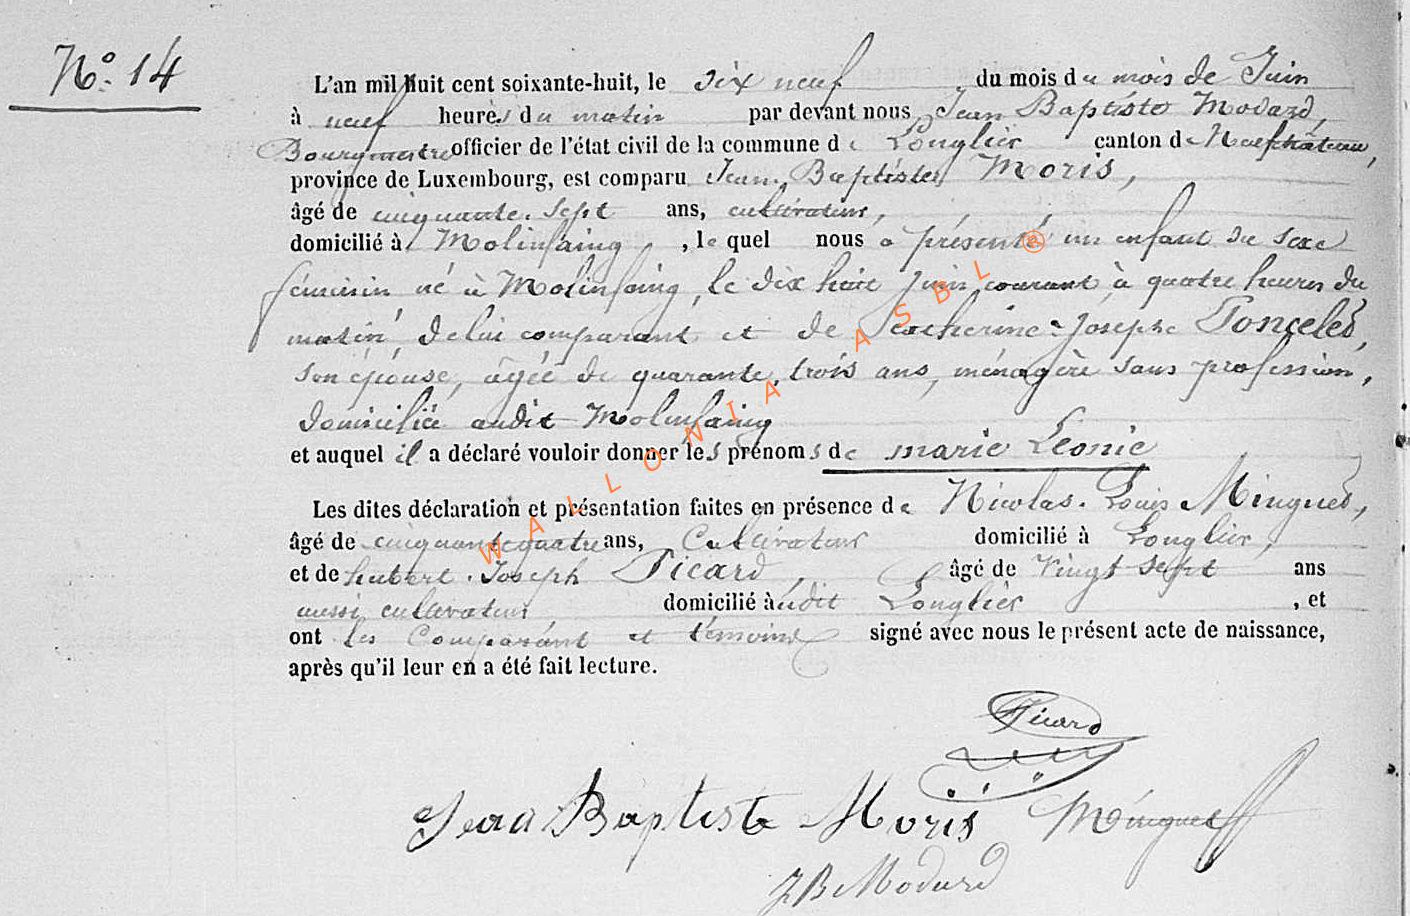 N° 14
L'an mil huit cent soixante-huit, le dix neuf du mois du mois de Juin
à neuf heures du matin par devant nous, Jean Baptiste Modard,
Bourgmestre officier de l'état civil de la commune de Longlier canton de Neufchâteau,
province de Luxembourg, est comparu Jean, Baptiste, Moris,
âgé de cinquante. sept ans, cultivateur,
domicilié à Molinfaing, lequel nous a présenté un enfant du sexe
féminin né à Molinfaing, le dix huit juin courant, à quatre heures du
matin, de lui comparant et de Catherine-Josephe Poncelet,
son épouse, âgée de quarante. trois ans, ménagère sans profession,
domiciliée audit Molinfaing
et auquel il a déclaré vouloir donner les prénoms de marie Leonie
Les dites déclaration et présentation faites en présence de Nicolas. Louis Minguet,
âgé de cinquante quatre ans, Cultivateur domicilié à Longlier,
et de hubert. Joseph Picard, âgé de Vingt sept ans
aussi cultivateur domicilié audit Longlier, et
ont les Comparant et témoins signé avec nous le présent acte de naissance,
après qu'il leur en a été fait lecture.
WALLONIA ASBL @
Picard
Jean Baptiste Moris Minguet
JB Modard